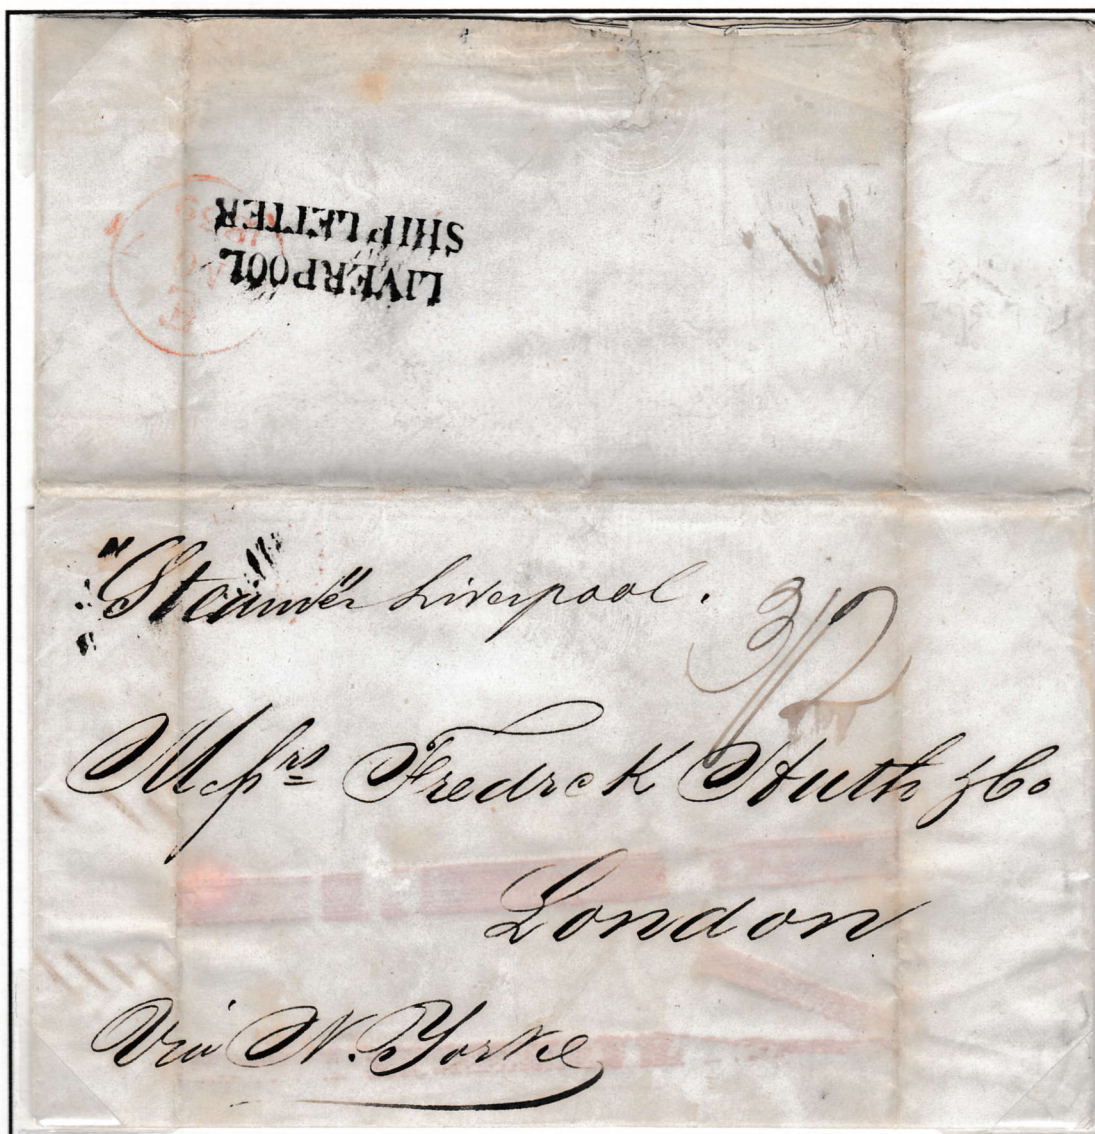 LIVERPOOL
SHIP LETTER
1839
"Steamer" Liverpool.
3/2
Messrs Fredrck Huth & Co
London
Via N. Yorke